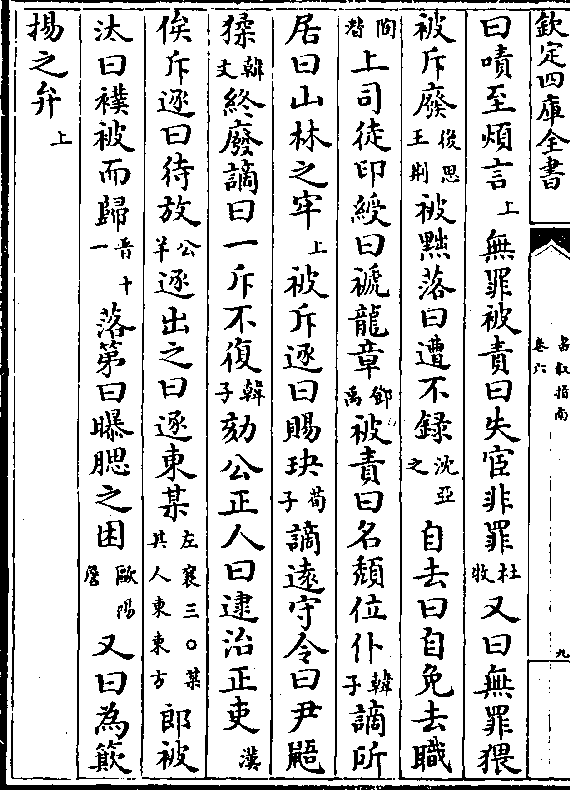 欽定四庫全書
書叙指南
卷六
九
曰嘖至煩言上無罪被責曰失宦非罪杜牧又曰無罪猥
被斥廢後思王荆被黜落曰遭不錄沈亞之自去曰自免去職
閻潛上司徒印綬曰褫龍章鄧禹被責曰名頽位仆韓子謫所
居曰山林之牢上被斥逐曰賜玦荀子謫逺守令曰尹鼯
猱韓文終廢謫曰一斥不復韓子劾公正人曰逮治正吏漢
俟斥逐曰待放公羊逐出之曰逐東某左襄三○某其人東東方郎被
汰曰襆被而歸晉十一落第曰曝腮之困歐陽詹又曰為簸
揚之弁上